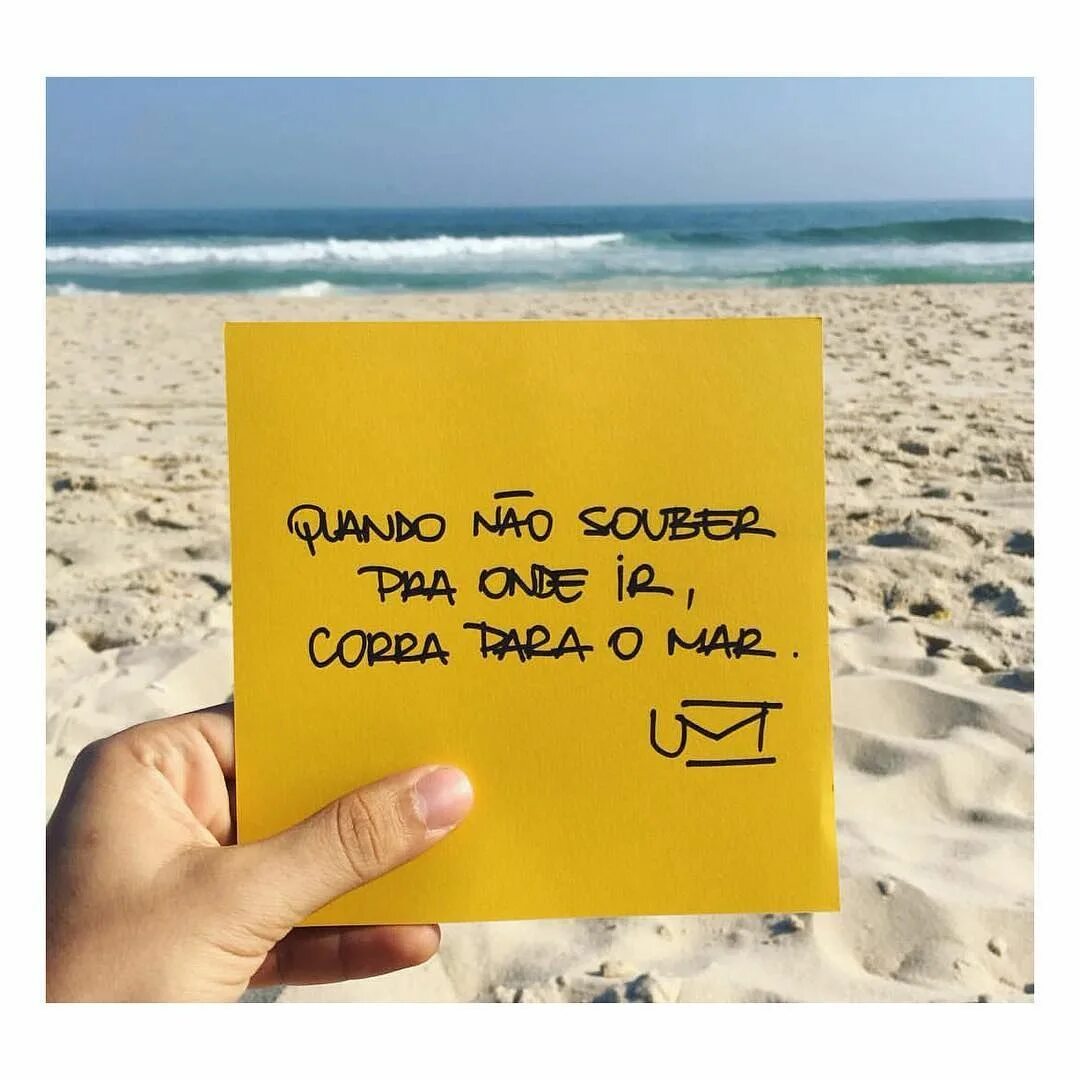 QUANDO NÃO SOUBER
PRA ONDE IR,
CORRA PARA O MAR.